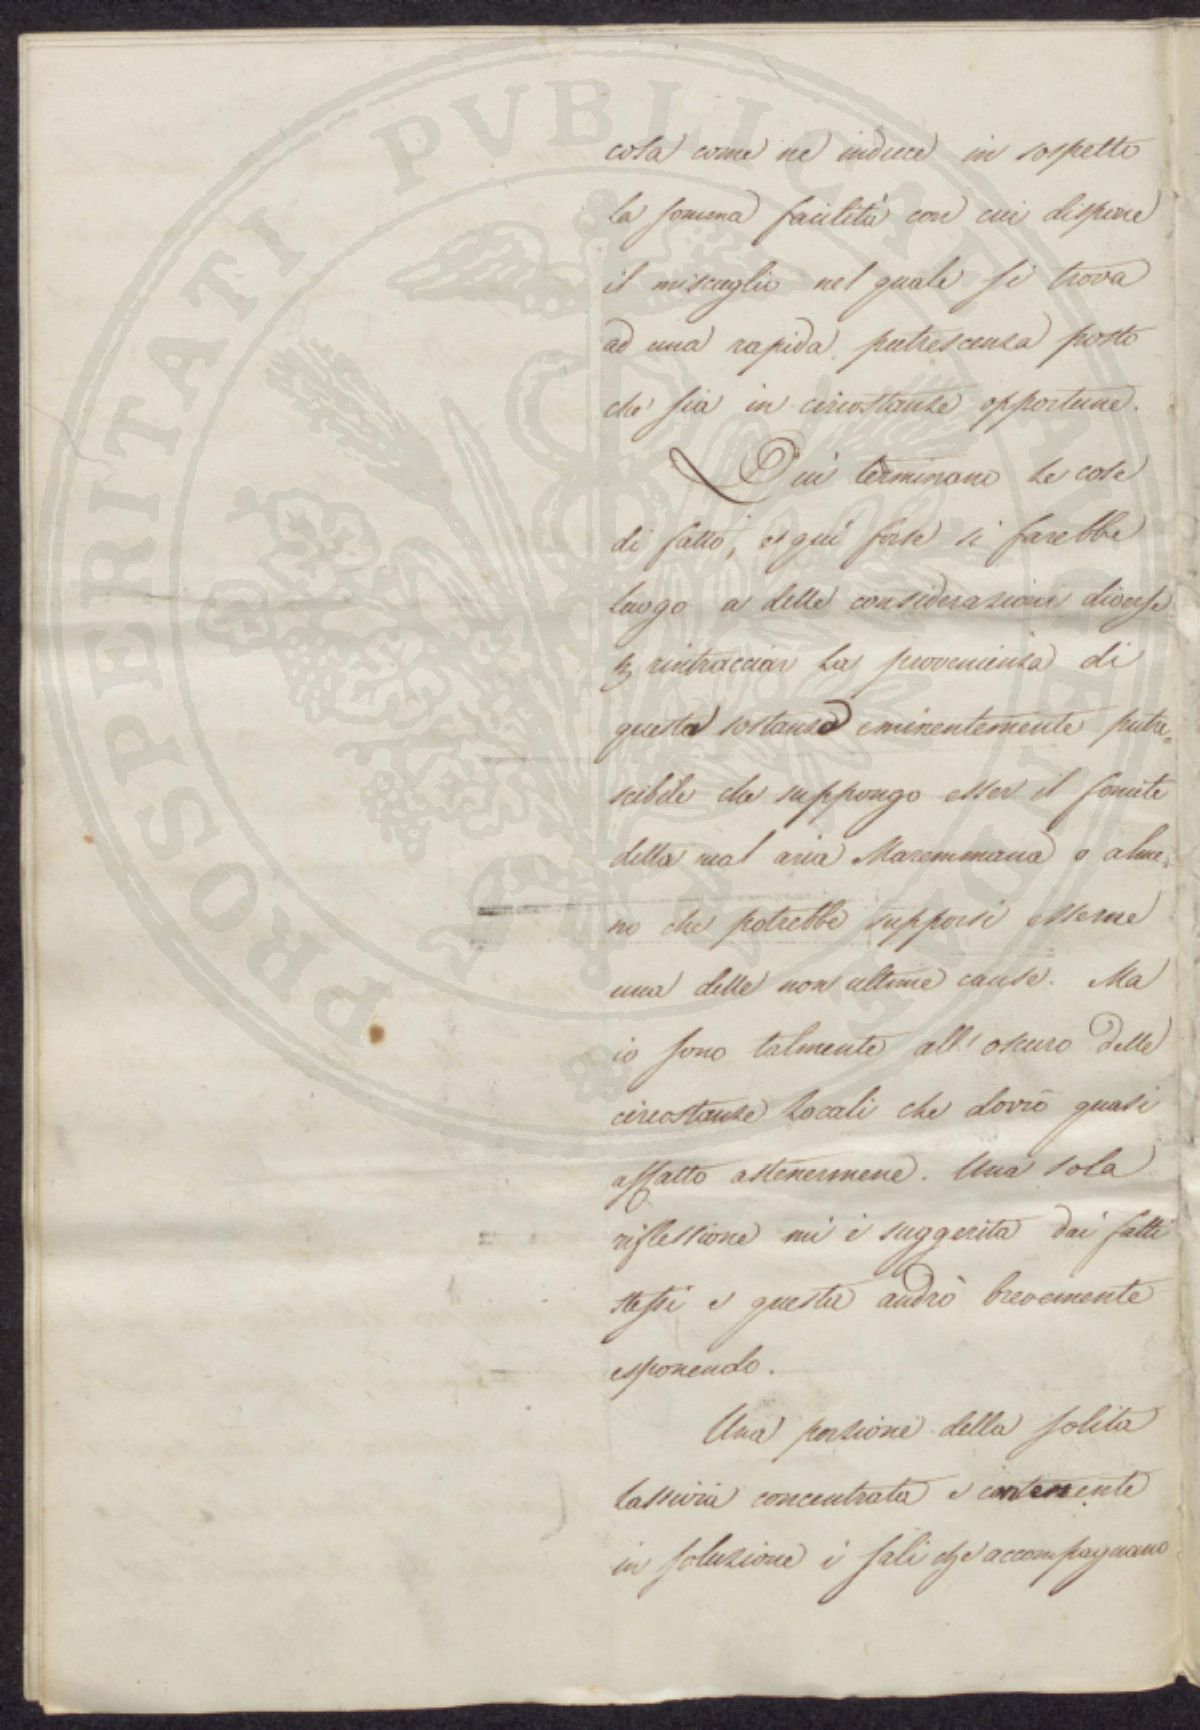 cosa come ne induce in sospetto
la somma facilità con cui dispone
il miscuglio nel quale si trova
ad una rapida putrescenza posto
che sia in circostanze opportune.
Qui terminano le cose
di fatto, e qui forse si farebbe
luogo a delle considerazioni diverse
rintracciar la provenienza di
questa sostanza eminentemente putre=
scibile che suppongo esser il fomite
della mal aria Maremmana o alme=
no che potrebbe supporsi esserne
una delle non ultime cause. Ma
io sono talmente all' oscuro delle
circostanze locali che dovrò quasi
affatto astenermene. Una sola
riflessione mi è suggerita dai fatti
stessi e questa andrò brevemente
esponendo.
Una porzione della solita
lassivia concentrata e contenente
in soluzione i sali che accompagnano
PROSPERITATI PVBLICAE